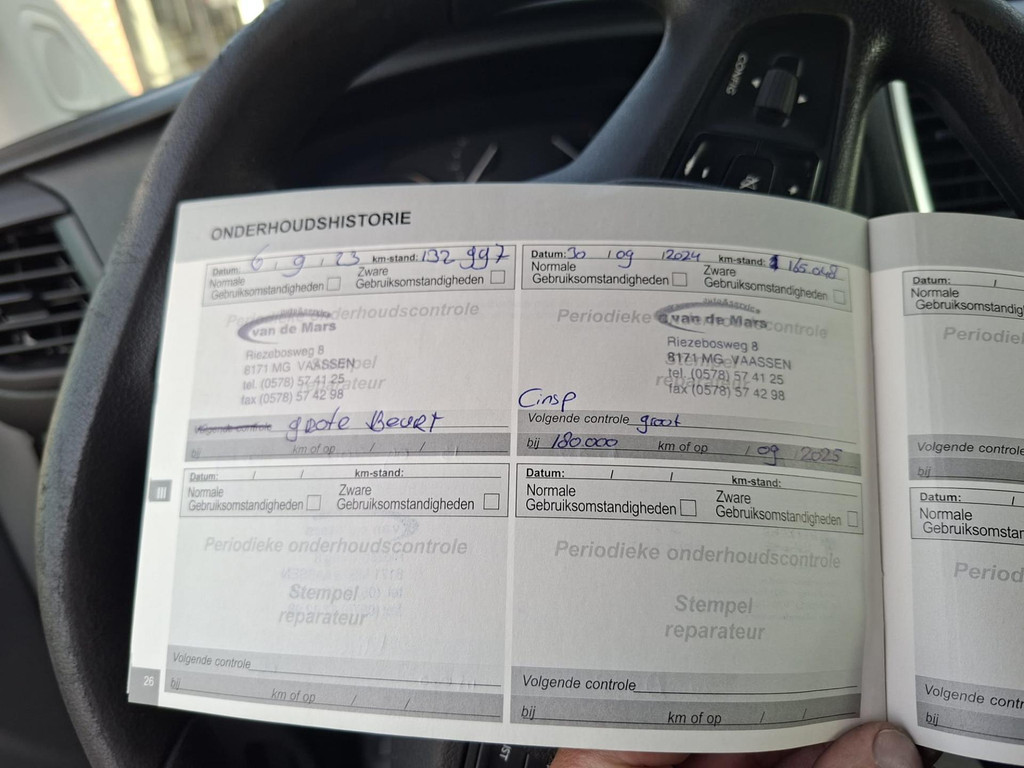 CONFIG
ONDERHOUDSHISTORIE
Datum: 6 / 9 / 23 km-stand: 132 997
Normale Gebruiksomstandigheden
Zware Gebruiksomstandigheden
Periodieke onderhoudscontrole
van de Mars
Riezebosweg 8
8171 MG VAASSEN
tel. (0578) 57 41 25
fax (0578) 57 42 98
Stempel
reparateur
Volgende controle grote Beurt
bij km of op / /
Datum: 30 / 09 / 2024 km-stand: 165 048
Normale Gebruiksomstandigheden
Zware Gebruiksomstandigheden
Periodieke onderhoudscontrole
van de Mars
Riezebosweg 8
8171 MG VAASSEN
tel. (0578) 57 41 25
fax (0578) 57 42 98
Cinsp
Volgende controle groot
bij 180.000 km of op / 09 / 2025
III
Datum: / / km-stand:
Normale Gebruiksomstandigheden
Zware Gebruiksomstandigheden
Periodieke onderhoudscontrole
Stempel
reparateur
Volgende controle
bij km of op / /
Datum: / / km-stand:
Normale Gebruiksomstandigheden
Zware Gebruiksomstandigheden
Periodieke onderhoudscontrole
Stempel
reparateur
Volgende controle
bij km of op / /
26
Datum: /
Normale
Gebruiksomstandig
Periodiek
Volgende controle
bij
Datum: /
Normale
Gebruiksomstan
Period
Volgende contr
bij